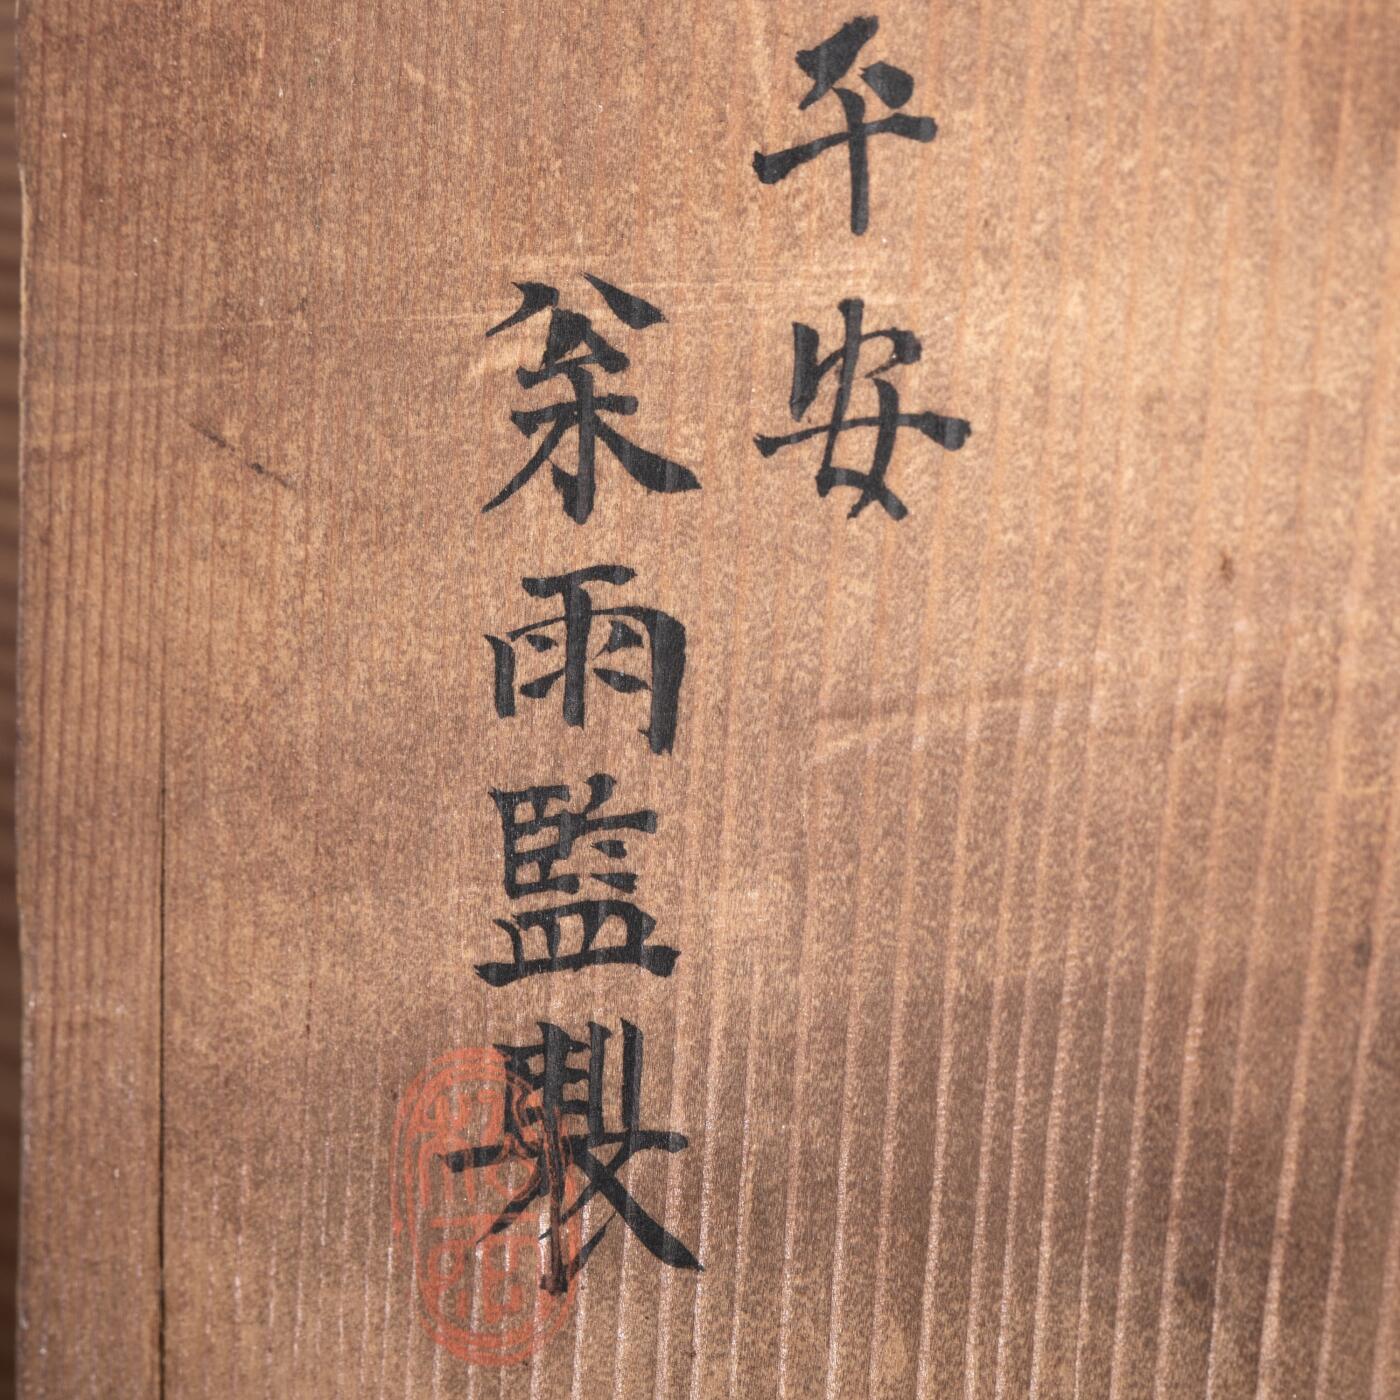 平安
枀雨監製